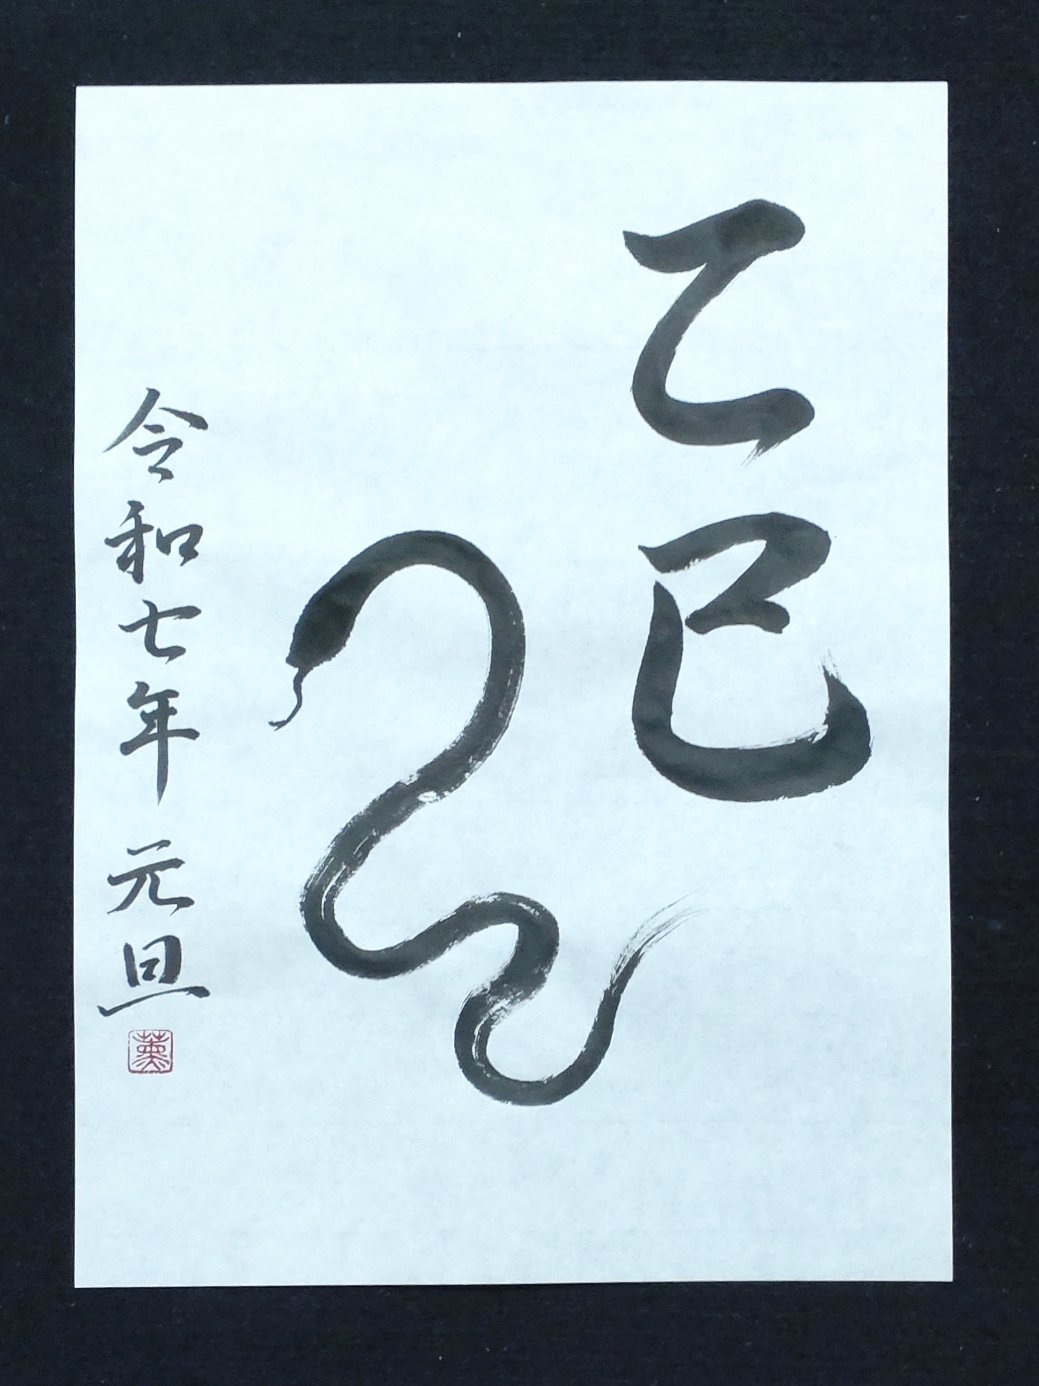 乙巳
令和七年 元旦
薫